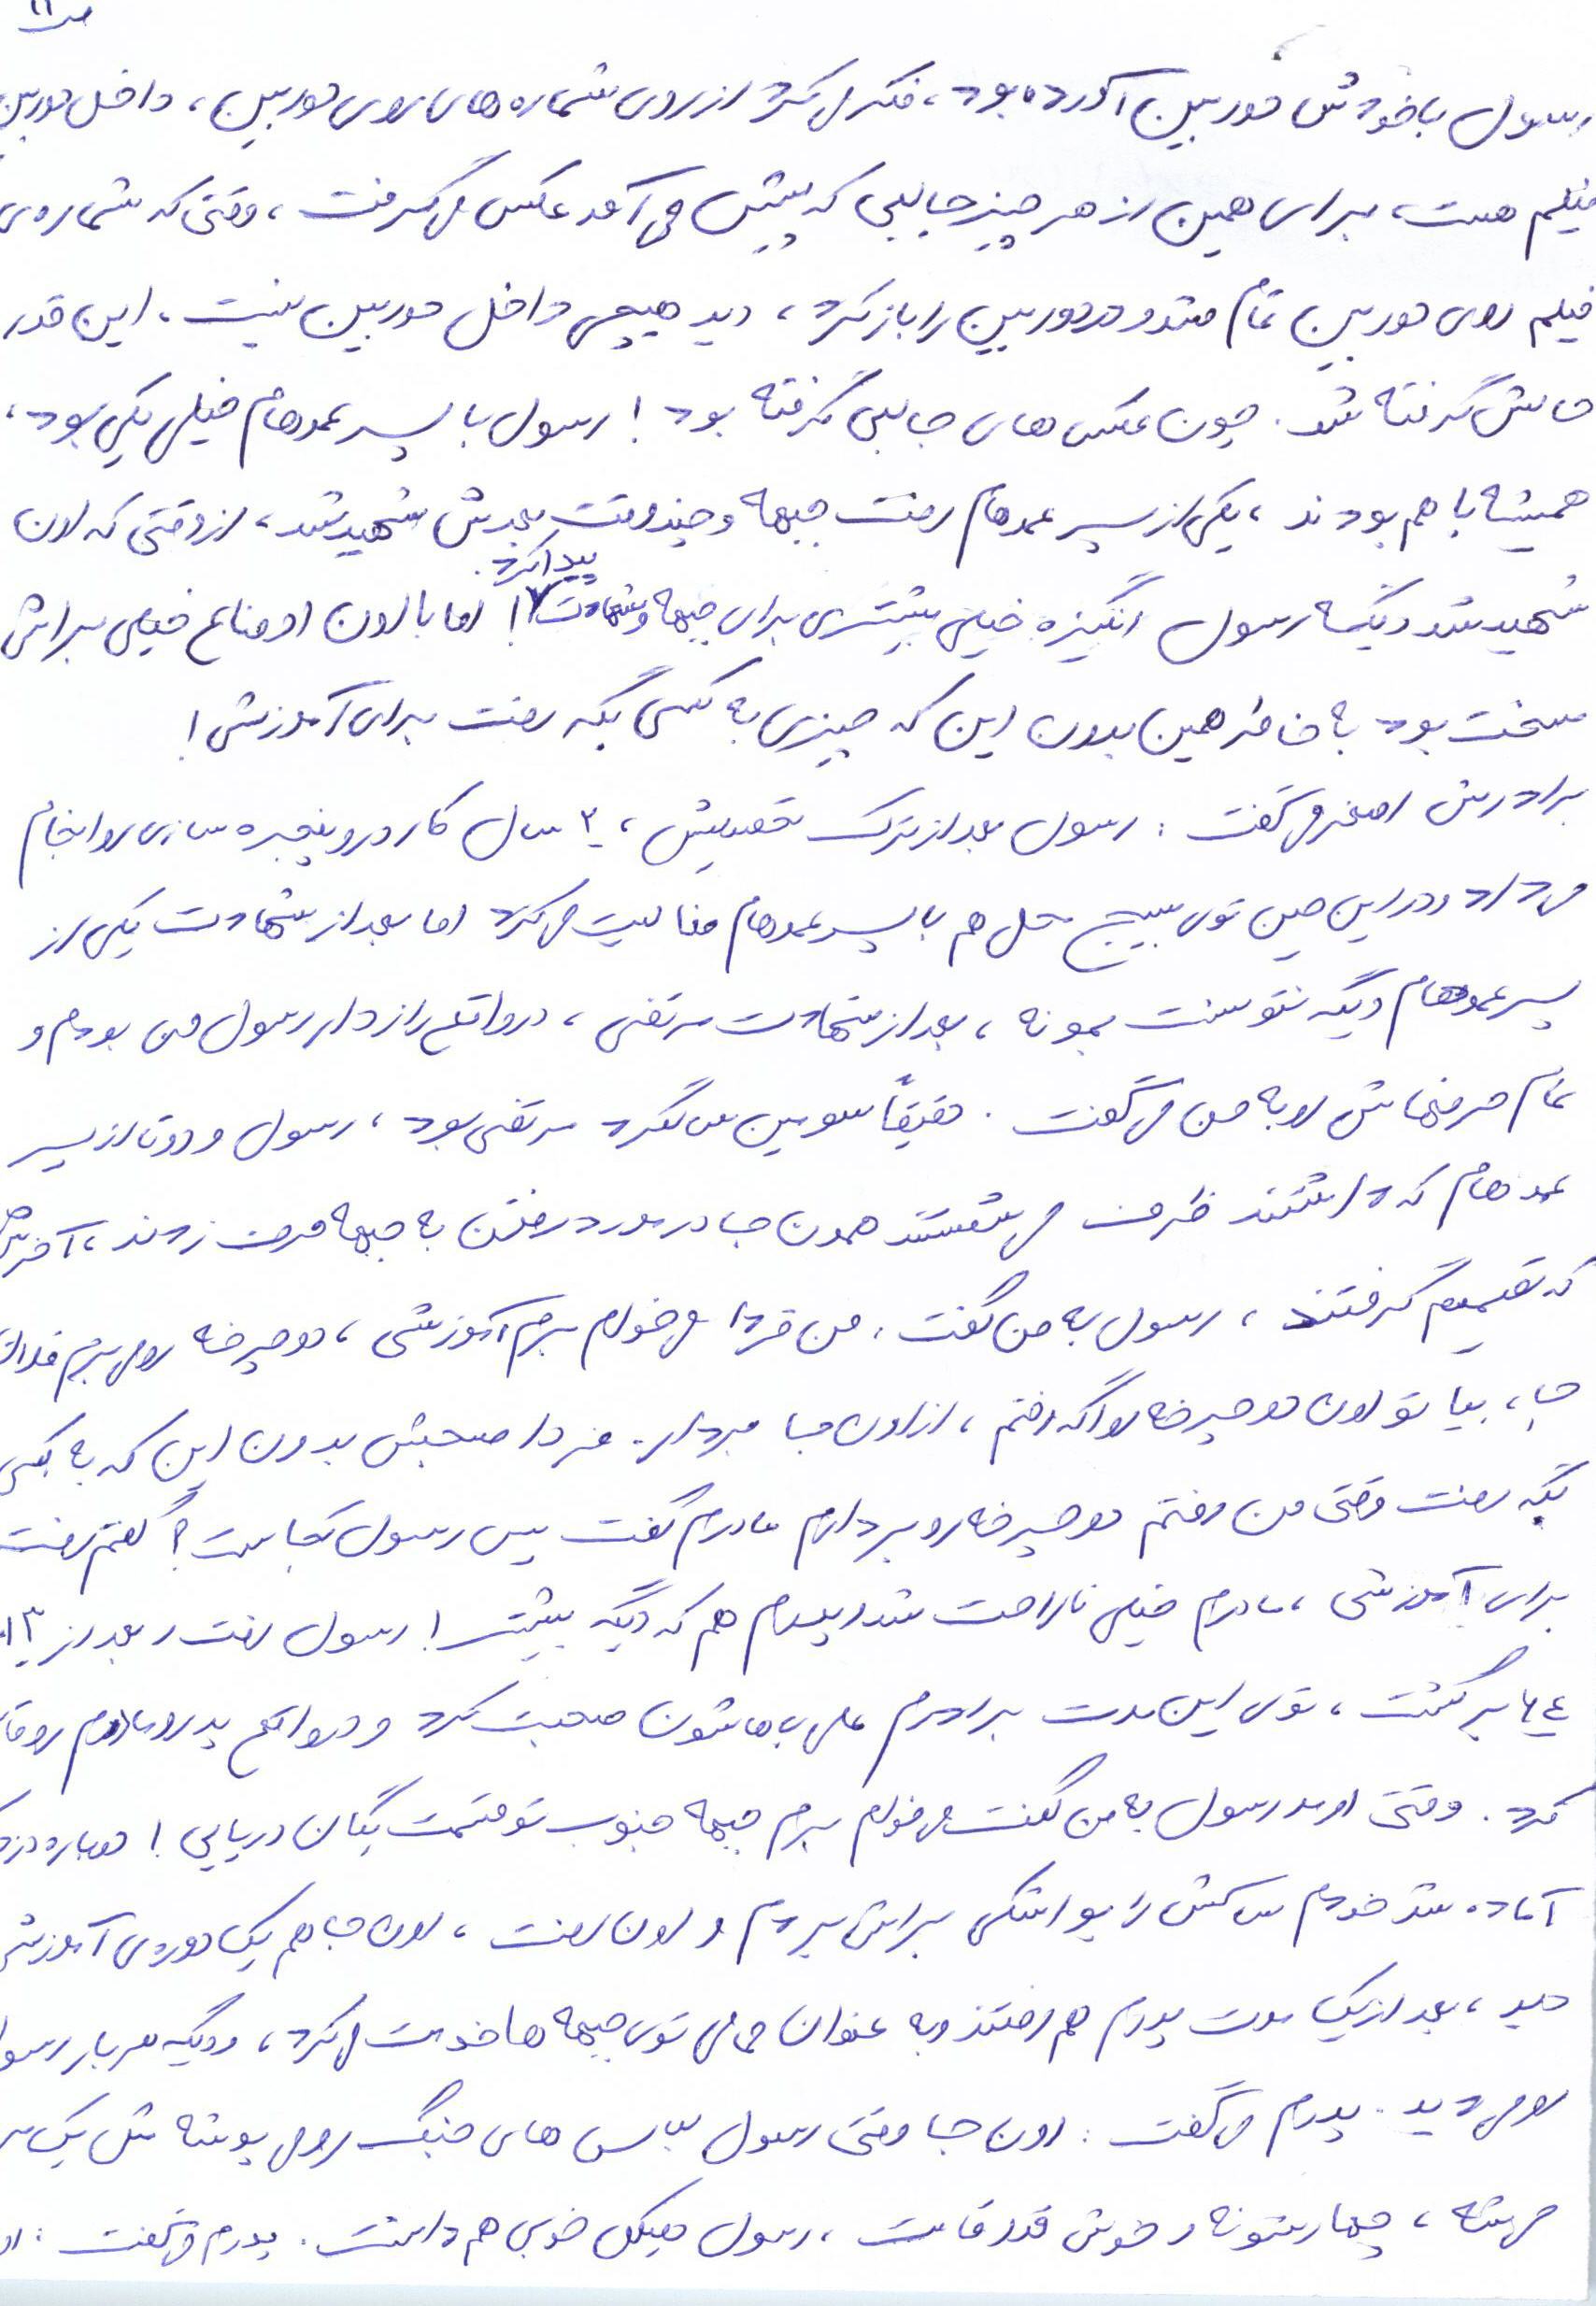 ص ۱۱
رسول با خودش دوربین آورده بود، فکر می‌کرد از روی شماره‌های روی دوربین، داخل دوربین
فیلم هست، برای همین از هر چیز جالبی که پیش می‌آمد عکس می‌گرفت، وقتی که شماره‌ی
فیلم روی دوربین تمام شد و در دوربین را باز کرد، دید هیچی داخل دوربین نیست. این قدر
حالش گرفته شد. چون عکس‌های جالبی گرفته بود! رسول با پسر عموهام خیلی یکی بود،
همیشه با هم بودند، یکی از پسر عموهام رفت جبهه و چند وقت بعدش شهید شد، از وقتی که اون
شهید شد دیگه رسول انگیزه خیلی بیشتری برای جبهه و شهادت پیدا کرد! اما با اون اوضاع خیلی براش
سخت بود به خاطر همین بدون این که چیزی به کسی بگه رفت برای آموزش!
برادرش اصغر می‌گفت: رسول بعد از ترک تحصیلش، ۳ سال کار در و پنجره سازی رو انجام
می‌داد و در این حین توی بسیج محل هم با پسر عموهام فعالیت می‌کرد اما بعد از شهادت یکی از
پسر عموهام دیگه نتونست بمونه، بعد از شهادت مرتضی، در واقع رازدار رسول من بودم و
تمام حرفهاش رو به من می‌گفت. دقیقاً سومین سالگرد مرتضی بود، رسول و دوتا از پسر
عموهام که داشتند ظرف می‌شستند همون جا در مورد رفتن به جبهه حرف زدند، آخرش هم
که تصمیم گرفتند، رسول به من گفت، من فردا می‌خوام برم آموزشی، دوچرخه رو می‌برم فلان
جا، بیا تو اون دوچرخه رو اگه رفتم، از اون جا بردار. فردا صبحش بدون این که به کسی
بگه رفت وقتی من رفتم دوچرخه رو بردارم مادرم گفت پس رسول کجاست؟ گفتم رفت
برای آموزشی، مادرم خیلی ناراحت شد و پدرم هم که دیگه بیشتر! رسول رفت و بعد از ۳ یا
۴ ماه برگشت، توی این مدت برادرم علی باهاشون صحبت کرد و در واقع پدر و مادرم رو
کرد. وقتی اومد رسول به من گفت می‌خوام برم جبهه جنوب تو قسمت یگان دریایی! دوباره
آماده شد خودم ساکش را یواشکی براش بردم و اون رفت، اون جا هم یک دوره‌ی آموزشی
دید، بعد از یک مدت پدرم هم رفتند و به عنوان توی جبهه‌ها خدمت می‌کرد، و دیگه هر بار رسول
رو می‌دید. پدرم می‌گفت: اون جا وقتی رسول لباس‌های جنگ رو می‌پوشه مثل یک
می‌شه، چهارشونه و خوش قد و قامت، رسول هیکل خوبی هم داشت. پدرم می‌گفت: